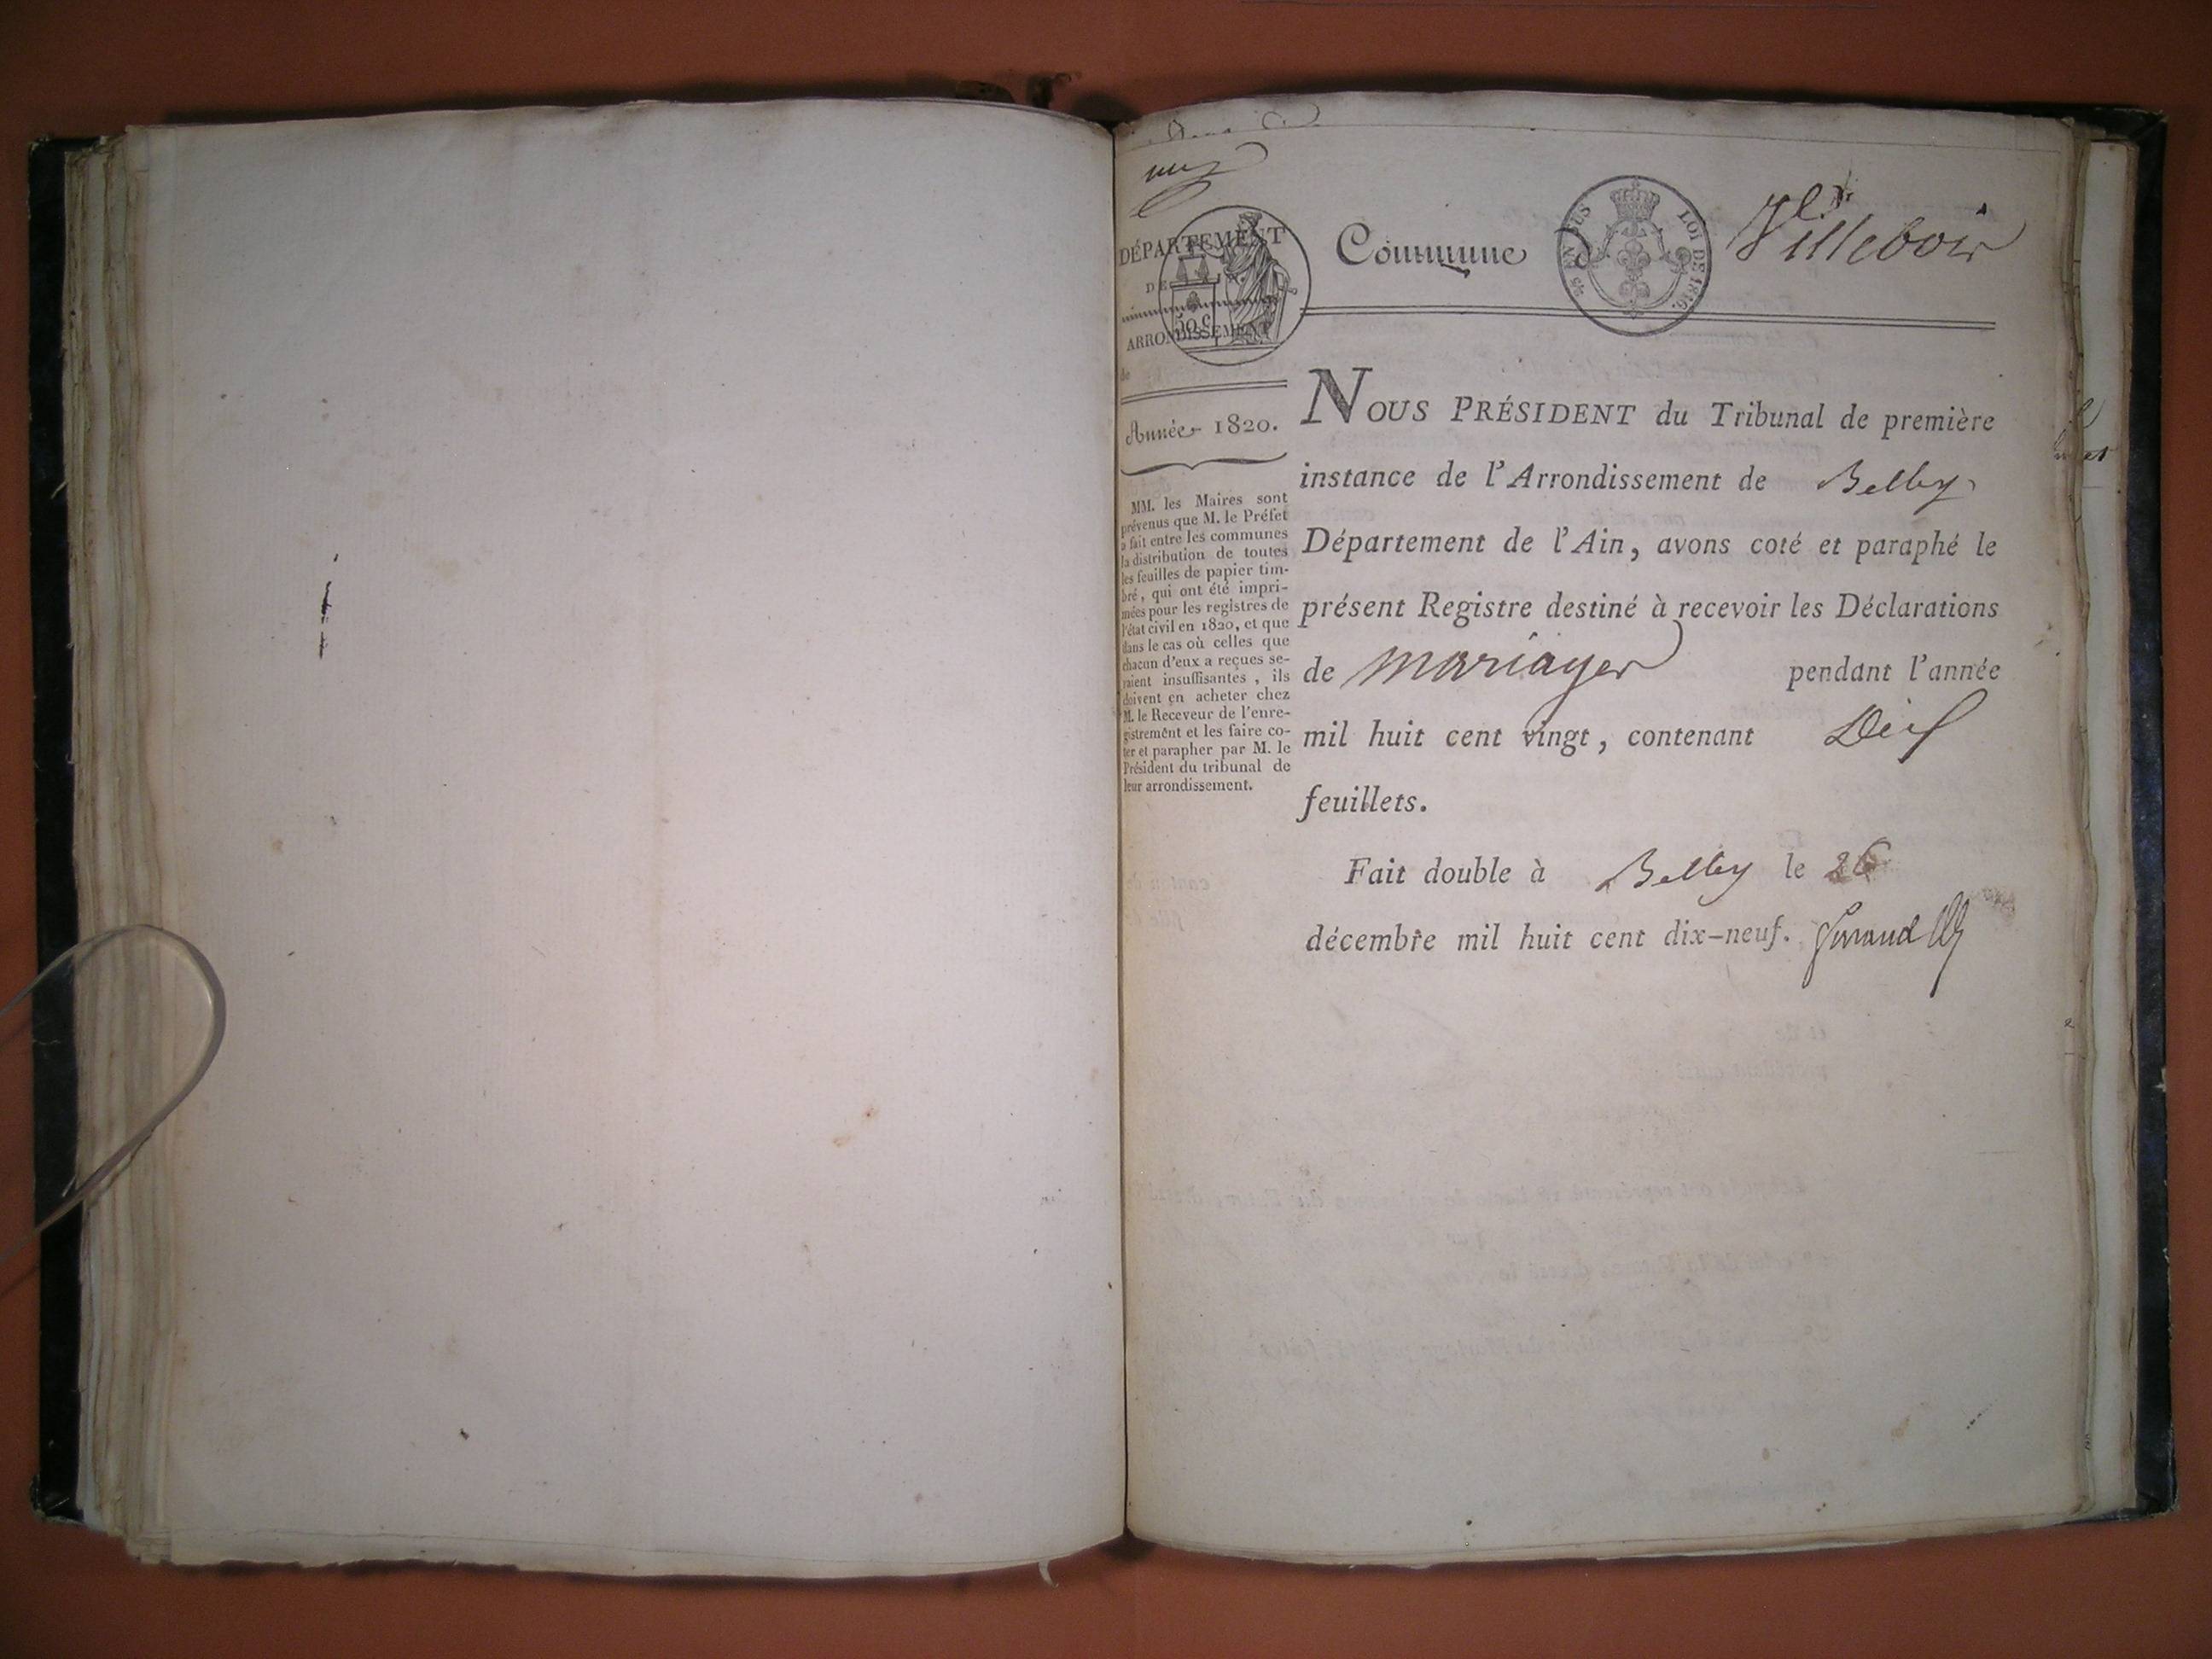 DÉPARTEMENT
DE
ARRONDISSEMENT
de
50 C.
Année 1820.
MM. les Maires sont
prévenus que M. le Préfet
a fait entre les communes
la distribution de toutes
les feuilles de papier tim-
bré, qui ont été impri-
mées pour les registres de
l'état civil en 1820, et que
dans le cas où celles que
chacun d'eux a reçues se-
raient insuffisantes, ils
doivent en acheter chez
M. le Receveur de l'enre-
gistrement et les faire co-
ter et parapher par M. le
Président du tribunal de
leur arrondissement.
Commune d Villebois
EN SUS
LOI DE 1816.
NOUS PRÉSIDENT du Tribunal de première
instance de l'Arrondissement de Belley
Département de l'Ain, avons coté et paraphé le
présent Registre destiné à recevoir les Déclarations
de mariages pendant l'année
mil huit cent vingt, contenant Dix
feuillets.
Fait double à Belley le 26
décembre mil huit cent dix-neuf.